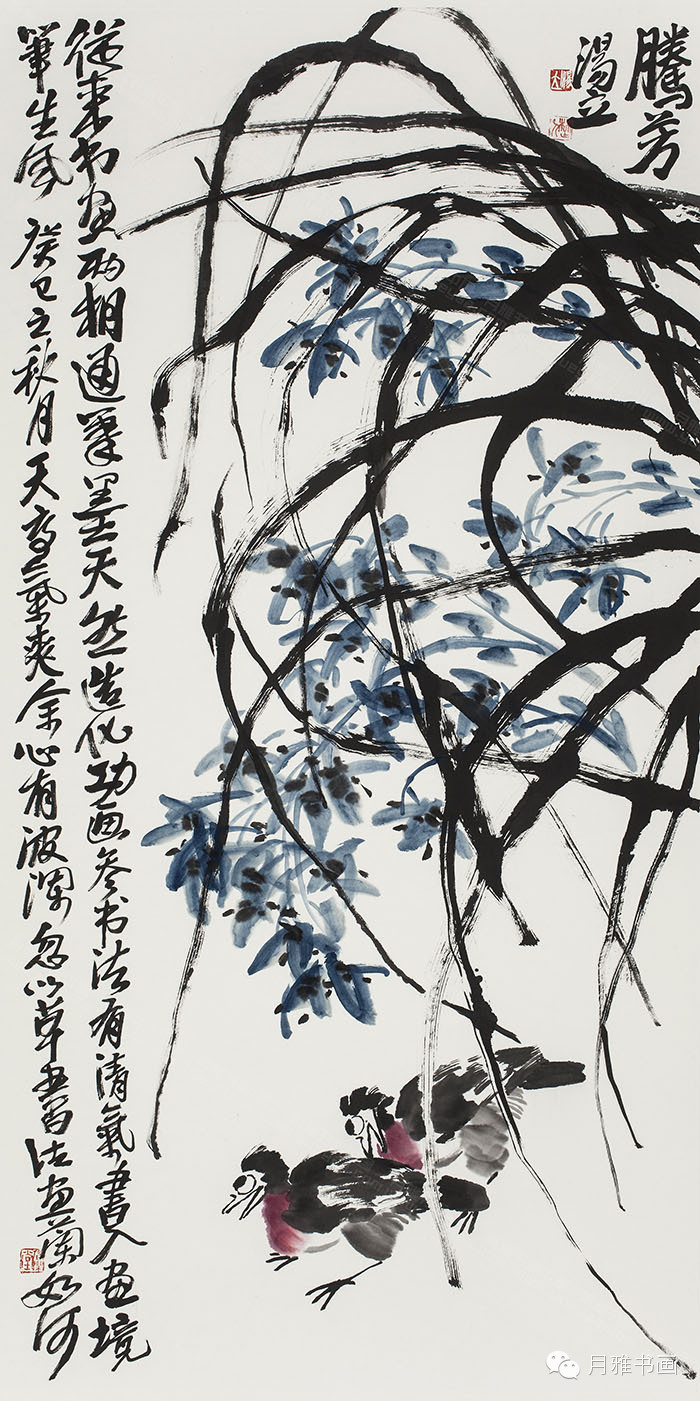 騰芳
湯立
從来书画两相通筆墨天然造化功画参书法有清氣書入画境
筆生风 癸巳之秋月天高氣爽余心有波澜忽以草書笔法画蘭如何
月雅书画